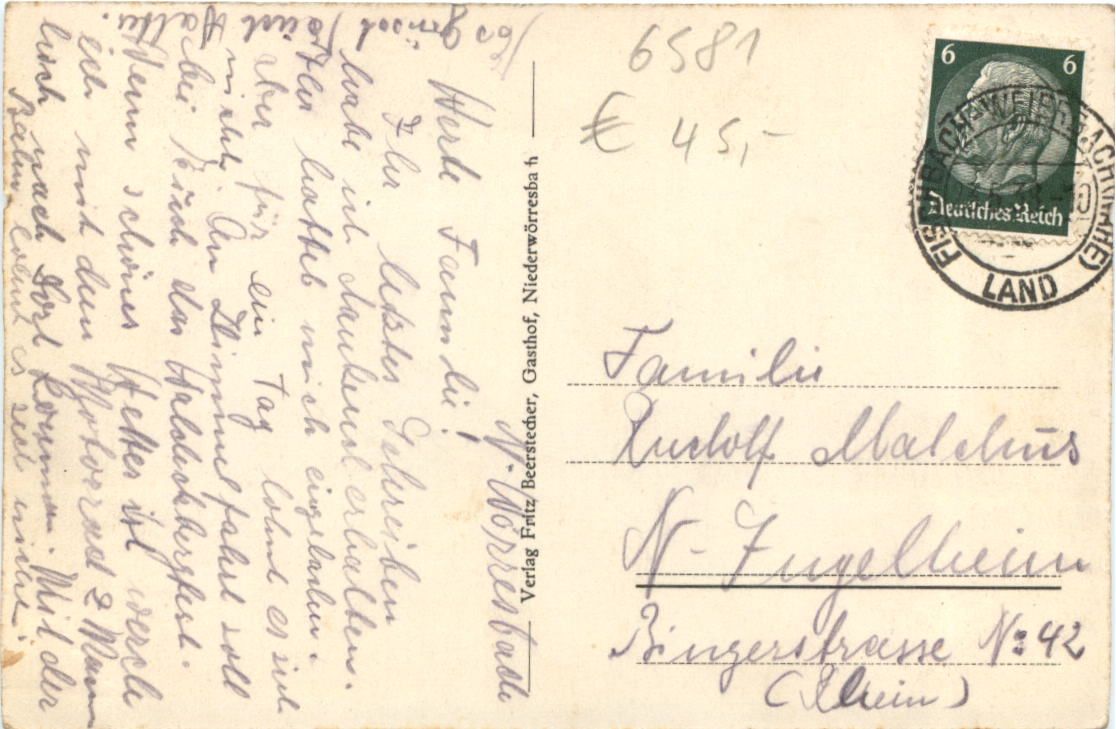 6581
€ 45,-
6 6
Deutsches Reich
FISCHBACH-WEIERBACH (NAHE)
LAND
Verlag Fritz Beerstecher, Gasthof, Niederwörresbach
N-Wörresbach
Werte Familie!
Ihr letztes Schreiben
habe ich dankend erhalten.
Ihr hattet mich eingeladen.
aber für ein Tag lohnt es sich
nicht. An Himmelfahrt soll
bei Euch das Waldeckbergfest.
Wenn schönes Wetter ist werde
ich mit dem Motorrad 2 Mann
hoch nach dort kommen. Mit der
Bahn lohnt es sich nicht.
Es grüsst Euch
Familie
Rudolf Malchus
N-Ingelheim
Bingerstrasse No 42
(Rhein)